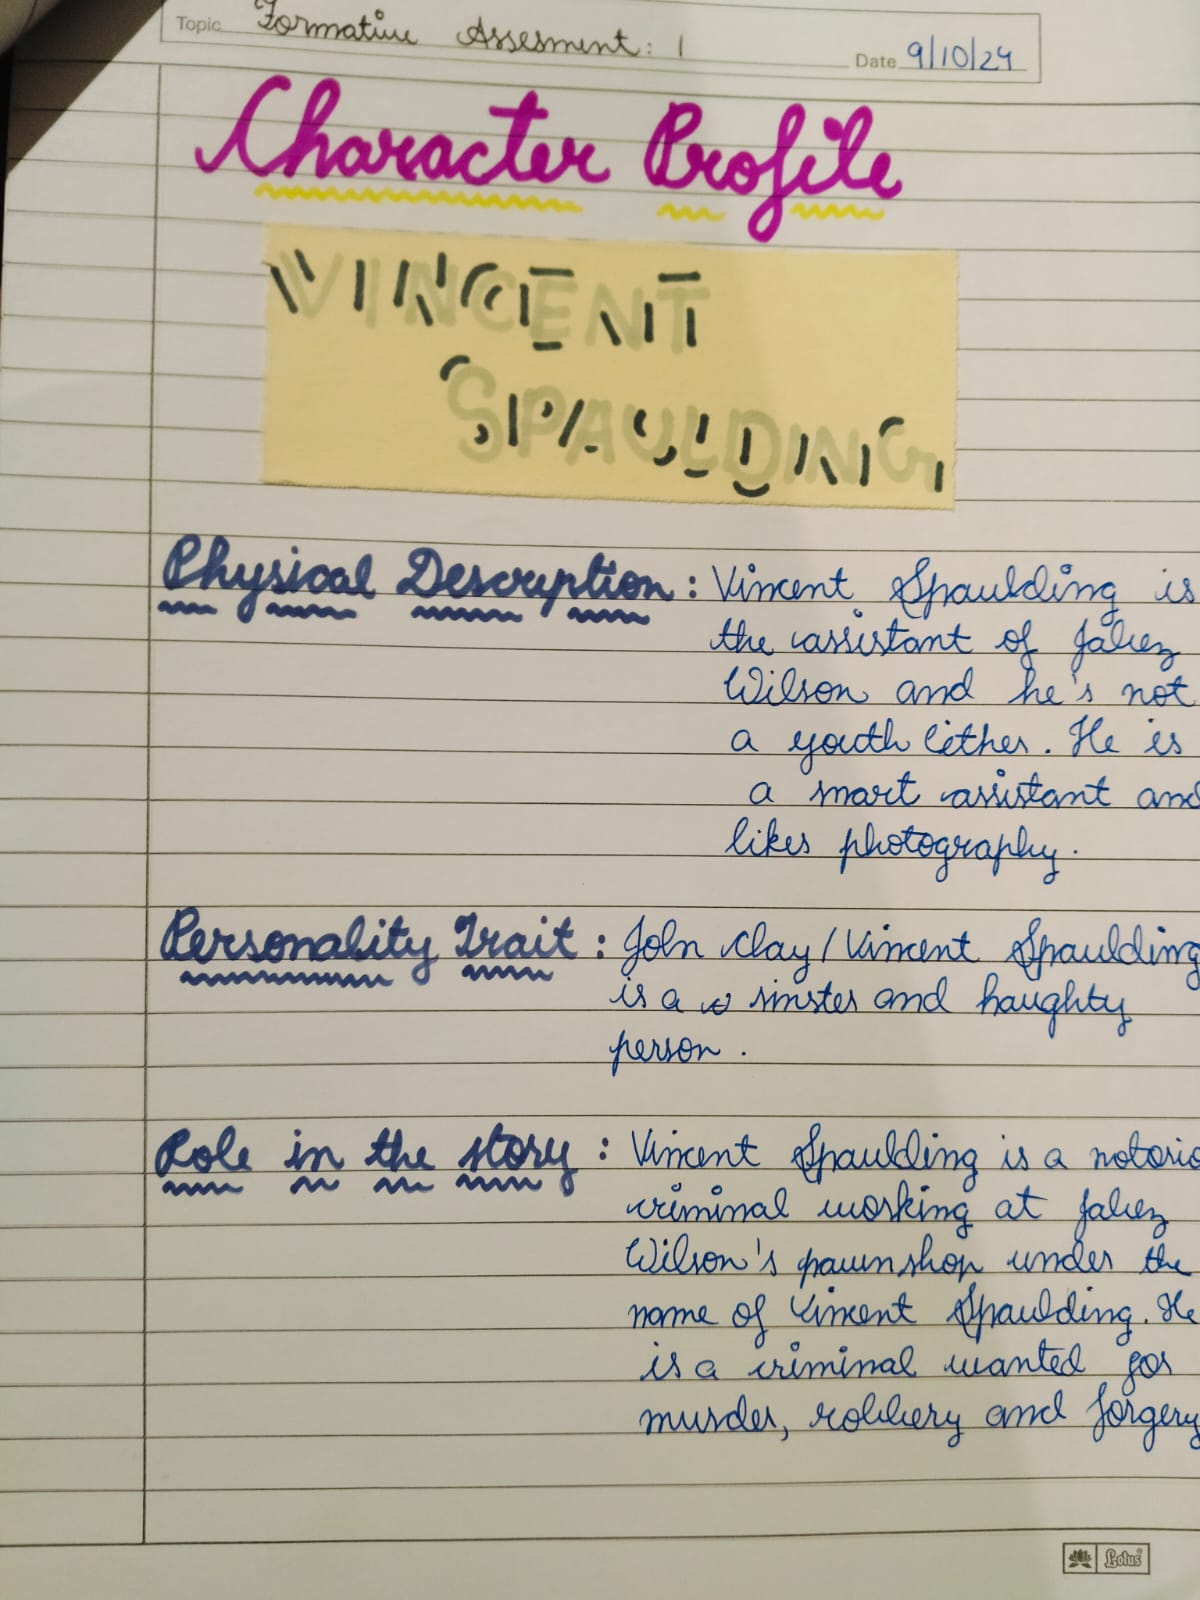 Topic Formative Assesment: 1
Date 9/10/24
Character Profile
VINCENT
SPAULDING
Physical Description: Vincent Spaulding is
the assistant of Jabez
Wilson and he's not
a youth Either. He is
a smart assistant and
likes photography.
Personality Trait: John Clay/Vincent Spaulding
is a sinster and haughty
person.
Role in the story: Vincent Spaulding is a notorio
criminal working at Jabez
Wilson's pawnshop under the
name of Vincent Spaulding. He
is a criminal wanted for
murder, robbery and forgery
Lotus